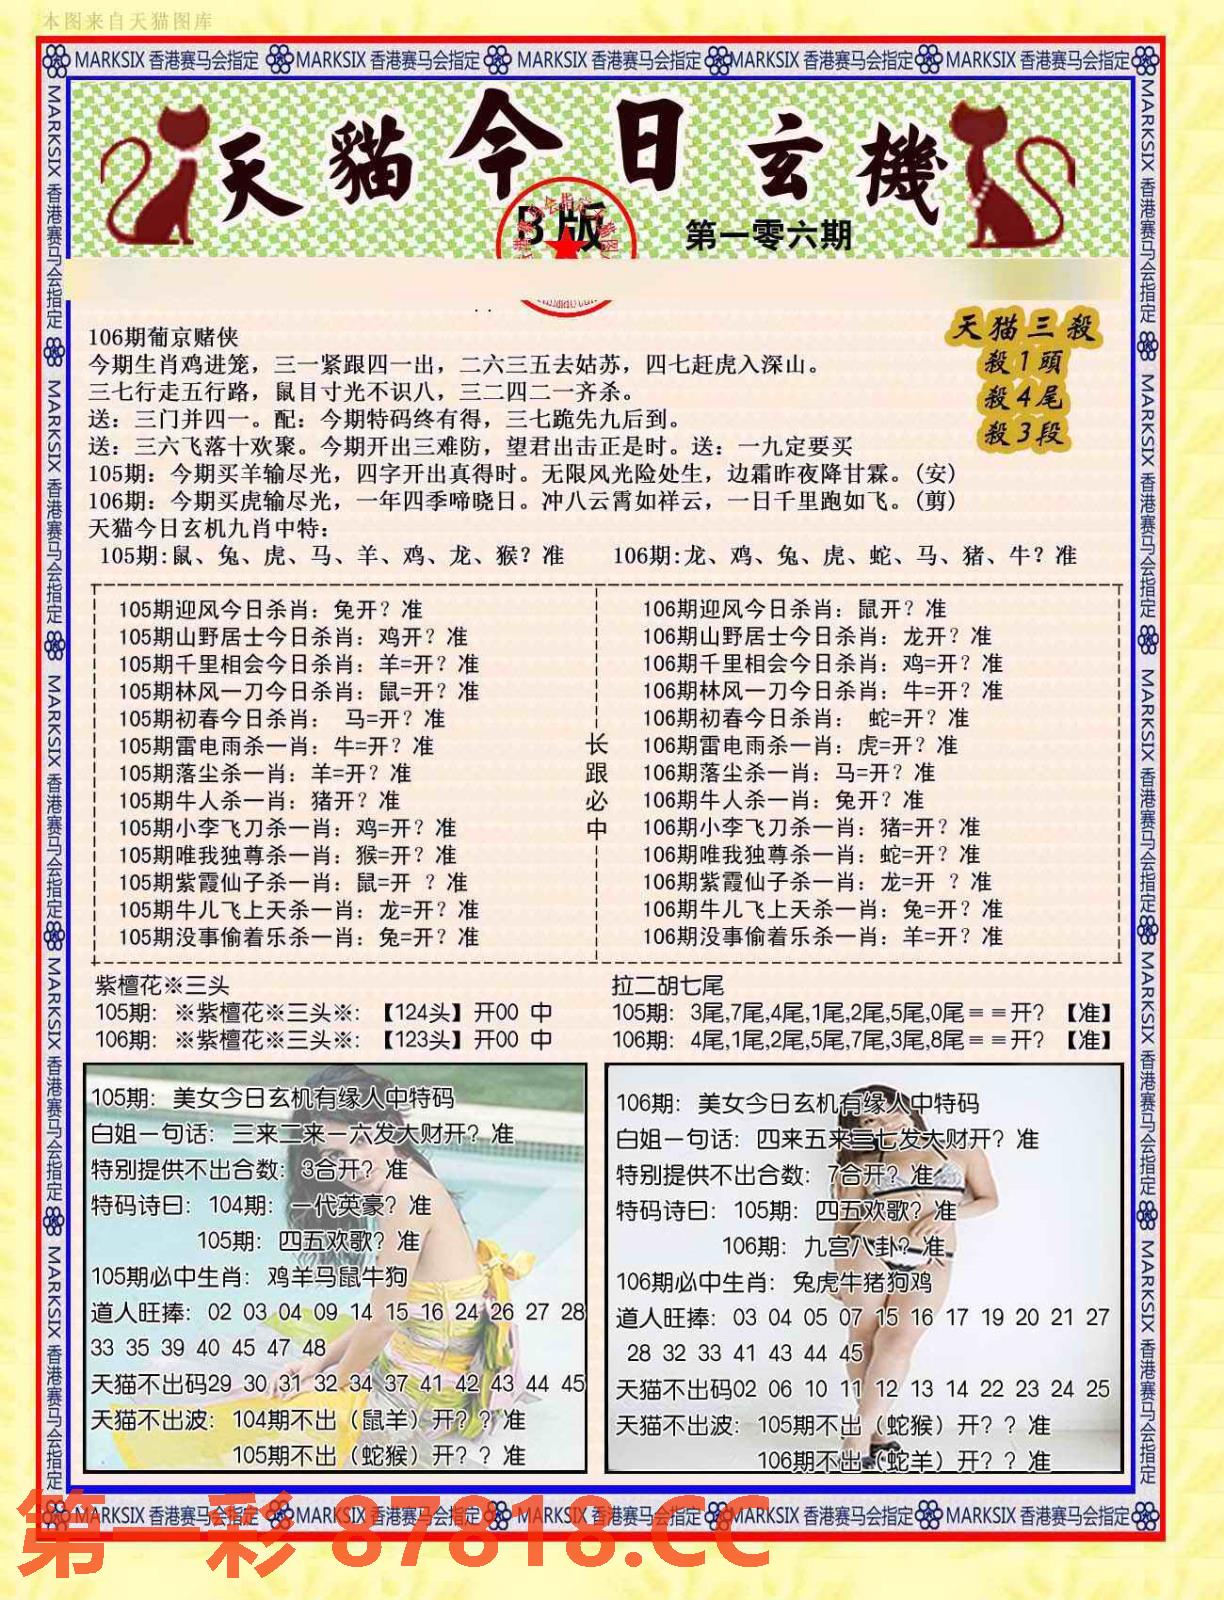 本图来自天猫图库
MARKSIX 香港赛马会指定 MARKSIX 香港赛马会指定 MARKSIX 香港赛马会指定 MARKSIX 香港赛马会指定 MARKSIX 香港赛马会指定
MARKSIX 香港赛马会指定 MARKSIX 香港赛马会指定 MARKSIX 香港赛马会指定 MARKSIX 香港赛马会指定 MARKSIX 香港赛马会指定
MARKSIX 香港赛马会指定 MARKSIX 香港赛马会指定 MARKSIX 香港赛马会指定 MARKSIX 香港赛马会指定 MARKSIX 香港赛马会指定
天貓今日玄機
B版
第一零六期
天猫三殺
殺1頭
殺4尾
殺3段
106期葡京赌侠
今期生肖鸡进笼，三一紧跟四一出，二六三五去姑苏，四七赶虎入深山。
三七行走五行路，鼠目寸光不识八，三二四二一齐杀。
送：三门并四一。配：今期特码终有得，三七跪先九后到。
送：三六飞落十欢聚。今期开出三难防，望君出击正是时。送：一九定要买
105期：今期买羊输尽光，四字开出真得时。无限风光险处生，边霜昨夜降甘霖。(安)
106期：今期买虎输尽光，一年四季啼晓日。冲八云霄如祥云，一日千里跑如飞。(剪)
天猫今日玄机九肖中特：
105期:鼠、兔、虎、马、羊、鸡、龙、猴？准 106期:龙、鸡、兔、虎、蛇、马、猪、牛？准
105期迎风今日杀肖：兔开？准
105期山野居士今日杀肖：鸡开？准
105期千里相会今日杀肖：羊=开？准
105期林风一刀今日杀肖：鼠=开？准
105期初春今日杀肖： 马=开？准
105期雷电雨杀一肖：牛=开？准
105期落尘杀一肖：羊=开？准
105期牛人杀一肖：猪开？准
105期小李飞刀杀一肖：鸡=开？准
105期唯我独尊杀一肖：猴=开？准
105期紫霞仙子杀一肖：鼠=开 ？准
105期牛儿飞上天杀一肖：龙=开？准
105期没事偷着乐杀一肖：兔=开？准
长跟必中
106期迎风今日杀肖：鼠开？准
106期山野居士今日杀肖：龙开？准
106期千里相会今日杀肖：鸡=开？准
106期林风一刀今日杀肖：牛=开？准
106期初春今日杀肖： 蛇=开？准
106期雷电雨杀一肖：虎=开？准
106期落尘杀一肖：马=开？准
106期牛人杀一肖：兔开？准
106期小李飞刀杀一肖：猪=开？准
106期唯我独尊杀一肖：蛇=开？准
106期紫霞仙子杀一肖：龙=开 ？准
106期牛儿飞上天杀一肖：兔=开？准
106期没事偷着乐杀一肖：羊=开？准
紫檀花※三头
105期：※紫檀花※三头※：【124头】开00 中
106期：※紫檀花※三头※：【123头】开00 中
拉二胡七尾
105期：3尾,7尾,4尾,1尾,2尾,5尾,0尾＝＝开？【准】
106期：4尾,1尾,2尾,5尾,7尾,3尾,8尾＝＝开？【准】
105期：美女今日玄机有缘人中特码
白姐一句话：三来二来一六发大财开？准
特别提供不出合数：3合开？准
特码诗曰：104期：一代英豪？准
105期：四五欢歌？准
105期必中生肖：鸡羊马鼠牛狗
道人旺捧：02 03 04 09 14 15 16 24 26 27 28
33 35 39 40 45 47 48
天猫不出码29 30 31 32 34 37 41 42 43 44 45
天猫不出波：104期不出（鼠羊）开？？准
105期不出（蛇猴）开？？准
106期：美女今日玄机有缘人中特码
白姐一句话：四来五来三七发大财开？准
特别提供不出合数：7合开？准
特码诗曰：105期：四五欢歌？准
106期：九宫八卦？准
106期必中生肖：兔虎牛猪狗鸡
道人旺捧：03 04 05 07 15 16 17 19 20 21 27
28 32 33 41 43 44 45
天猫不出码02 06 10 11 12 13 14 22 23 24 25
天猫不出波：105期不出（蛇猴）开？？准
106期不出（蛇羊）开？？准
MARKSIX 香港赛马会指定 MARKSIX 香港赛马会指定 MARKSIX 香港赛马会指定 MARKSIX 香港赛马会指定 MARKSIX 香港赛马会指定
第一彩 87818.CC